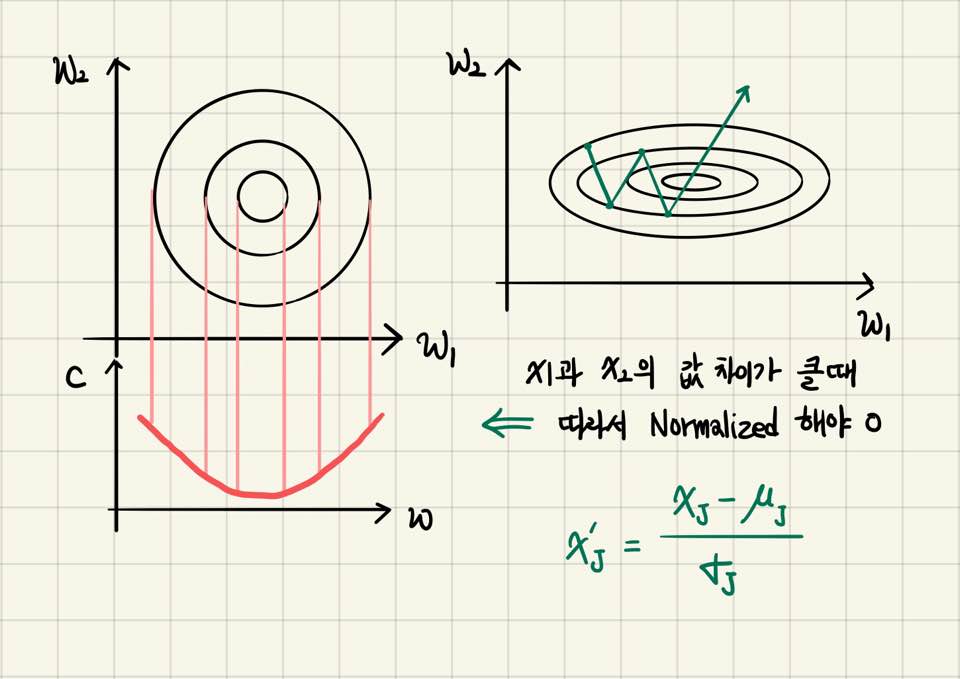 W₂
W₁
C
w
W₂
W₁
x1과 x2의 값 차이가 클때
⇐ 따라서 Normalized 해야 O
x'_J = (x_J - μ_J) / σ_J